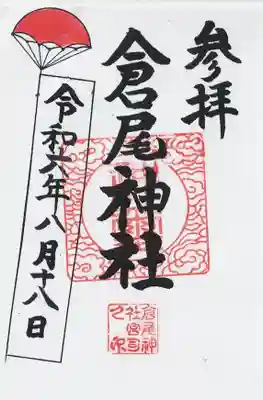 参拝
倉尾神社
令和六年八月十八日
倉尾神
社宮司
之印